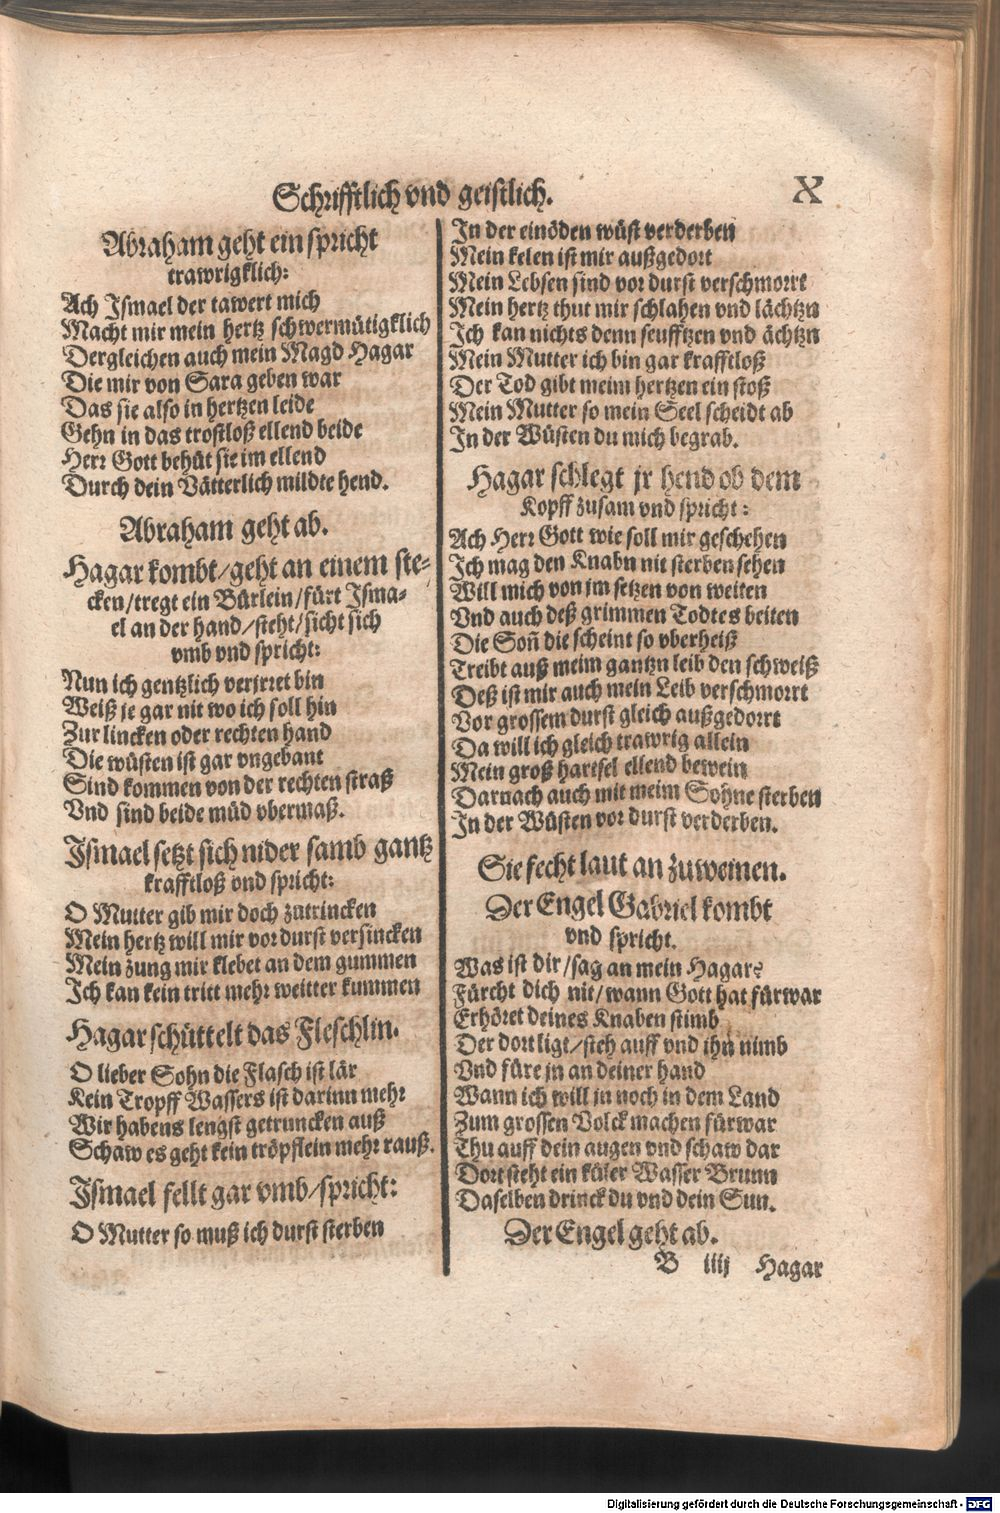 Schrifftlich vnd geistlich.
X
Abraham geht ein spricht
trawrigklich:
Ach Ismael der tawert mich
Macht mir mein hertz schwermütigklich
Dergleichen auch mein Magd Hagar
Die mir von Sara geben war
Das sie also in hertzen leide
Gehn in das trostloß ellend beide
Herr Gott behüt sie im ellend
Durch dein Vätterlich mildte hend.
Abraham geht ab.
Hagar kombt/geht an einem ste-
cken/tregt ein Bürlein/fürt Isma-
el an der hand/steht/sicht sich
vmb vnd spricht:
Nun ich gentzlich verirret bin
Weiß je gar nit wo ich soll hin
Zur lincken oder rechten hand
Die wüsten ist gar vngebant
Sind kommen von der rechten straß
Vnd sind beide müd vbermaß.
Ismael setzt sich nider samb gantz
krafftloß vnd spricht:
O Mutter gib mir doch zutrincken
Mein hertz will mir vor durst versincken
Mein zung mir klebet an dem gummen
Ich kan kein tritt mehr weitter kummen
Hagar schüttelt das Fleschlin.
O lieber Sohn die Flasch ist lär
Kein Tropff Wassers ist darinn mehr
Wir habens lengst getruncken auß
Schaw es geht kein tröpflein mehr rauß.
Ismael fellt gar vmb/spricht:
O Mutter so muß ich durst sterben
In der einöden wüst verderben
Mein kelen ist mir außgedort
Mein Lebsen sind vor durst verschmorrt
Mein hertz thut mir schlahen vnd lächtzn
Ich kan nichts denn seufftzen vnd ächtzn
Mein Mutter ich bin gar krafftloß
Der Tod gibt meim hertzen ein stoß
Mein Mutter so mein Seel scheidt ab
In der Wüsten du mich begrab.
Hagar schlegt jr hend ob dem
Kopff zusam vnd spricht:
Ach Herr Gott wie soll mir geschehen
Ich mag den Knabn nit sterben sehen
Will mich von jm setzen von weiten
Vnd auch deß grimmen Todtes beiten
Die Soñ die scheint so vberheiß
Treibt auß meim gantzn leib den schweiß
Deß ist mir auch mein Leib verschmorrt
Vor grossem durst gleich außgedorrt
Da will ich gleich trawrig allein
Mein groß hartsel ellend bewein
Darnach auch mit meim Sohne sterben
In der Wüsten vor durst verderben.
Sie fecht laut an zu weinen.
Der Engel Gabriel kombt
vnd spricht.
Was ist dir/sag an mein Hagar?
Fürcht dich nit/wann Gott hat fürwar
Erhöret deines Knaben stimb
Der dort ligt/steh auff vnd ihn nimb
Vnd füre jn an deiner hand
Wann ich will jn noch in dem Land
Zum grossen Volck machen fürwar
Thu auff dein augen vnd schaw dar
Dort steht ein küler Wasser Brunn
Daselben drinck du vnd dein Sun.
Der Engel geht ab.
B iiij Hagar
Digitalisierung gefördert durch die Deutsche Forschungsgemeinschaft - DFG